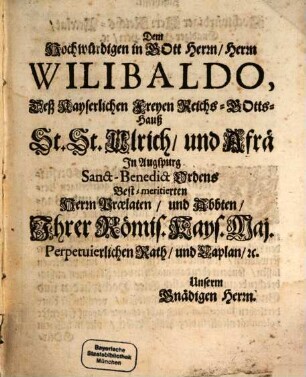 Dem
Hochwürdigen in GOtt Herrn/Herrn
WILIBALDO,
Deß Kayserlichen Freyen Reichs-GOtts-
Hauß
St. St. Ulrich/ und Afrä
In Augspurg
Sanct-Benedict Ordens
Best-meritierten
Herrn Prælaten/ und Abbten/
Ihrer Römis. Kays. Maj.
Perpetuierlichen Rath/ und Caplan/ ꝛc.
Unserm
Gnädigen Herrn.
Bayerische
Staatsbibliothek
München